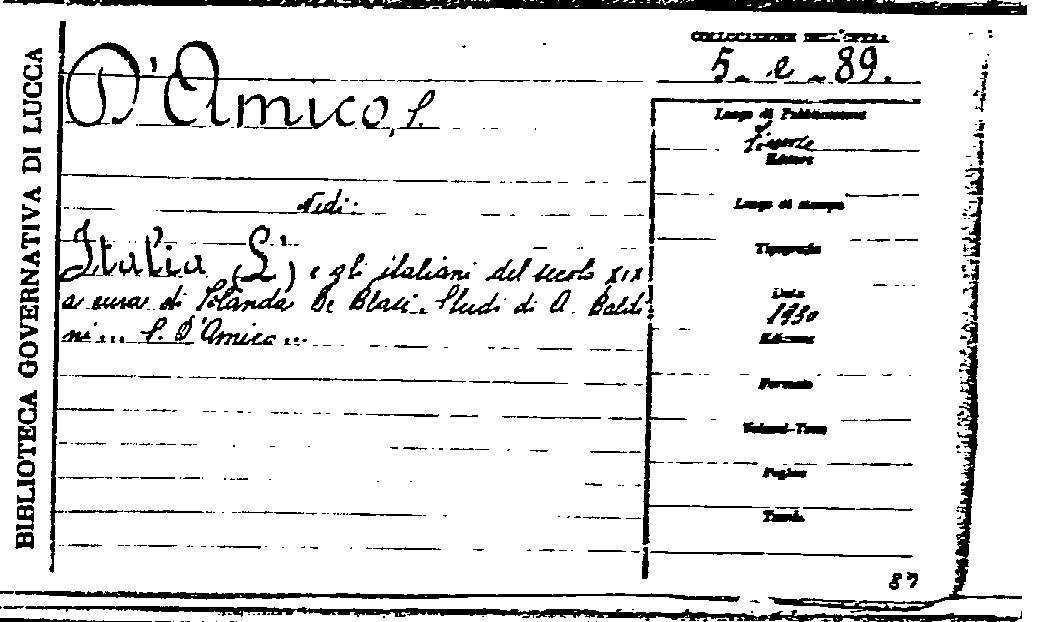 BIBLIOTECA GOVERNATIVA DI LUCCA
COLLOCAZIONE DELL'OPERA
5. e. 89.
D'Amico, S.
Vedi:
Italia (L') e gli italiani del secolo XIX
a cura di Jolanda De Blasi. Studi di A. Baldi
ni... S. D'Amico...
Luogo di Pubblicazione
Firenze
Editore
Luogo di stampa
Tipografia
Data
1930
Edizione
Formato
Volumi-Tomi
Pagine
Tavole
87